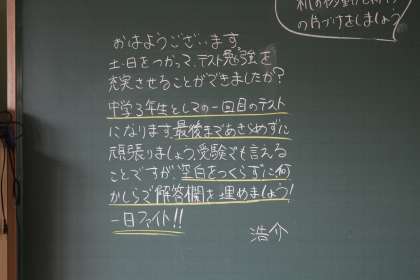 机の移動と椅子
の片づけをしましょう
おはようございます。
土・日をつかって、テスト勉強を
充実させることができましたか？
中学3年生としての一回目のテスト
になります。最後まであきらめずに
頑張りましょう。受験でも言える
ことですが、空白をつくらずに何
かしらで解答欄を埋めましょう！
一日ファイト!!
浩介